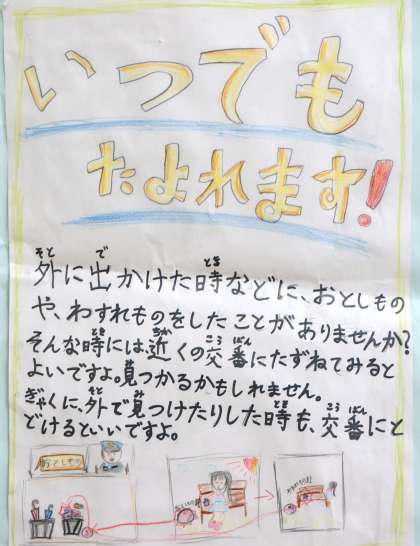 いつでも
たよれます!
外に出かけた時などに、おとしもの
や、わすれものをしたことがありませんか?
そんな時には、近くの交番にたずねてみると
よいですよ。見つかるかもしれません。
ぎゃくに、外で見つけたりした時も、交番にと
どけるといいですよ。
おとしもの